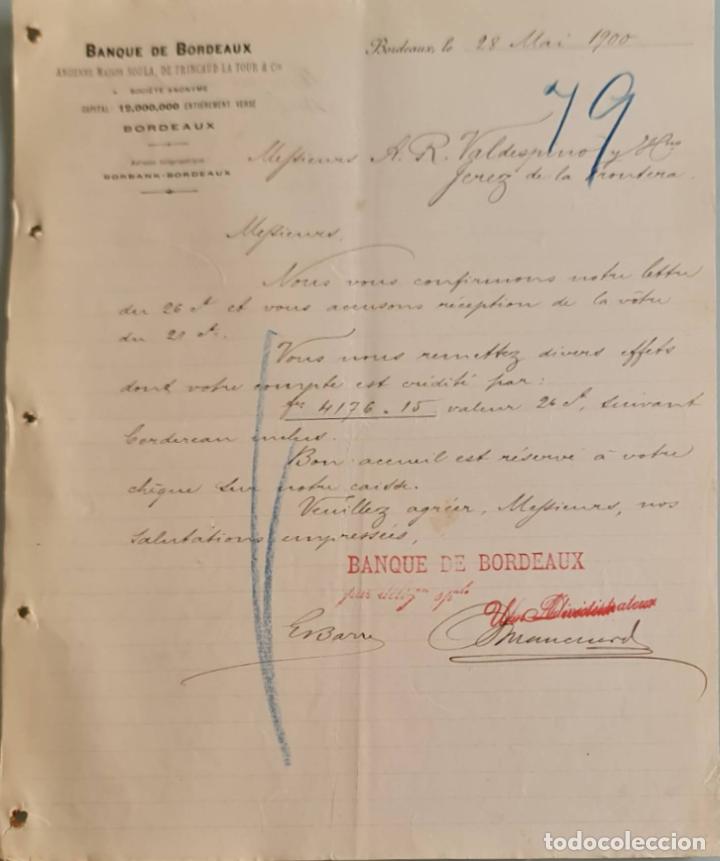 BANQUE DE BORDEAUX
ANCIENNE MAISON SOULA, DE TRINCAUD LA TOUR & Cie
SOCIÉTÉ ANONYME
CAPITAL : 12,000,000 ENTIÈREMENT VERSÉ
BORDEAUX
Adresse télégraphique :
BORBANK-BORDEAUX
Bordeaux, le 28 Mai 1900
79
Messieurs A. R. Valdespino y Hno
Jerez de la Frontera.
Messieurs,
Nous vous confirmons notre lettre
du 26 Ct et vous accusons réception de la vôtre
du 21 Ct.
Vous nous remettez divers effets
dont votre compte est crédité par:
frs 4176.15 valeur 26 Ct, suivant
bordereau inclus.
Bon accueil est réservé à votre
chèque sur notre caisse.
Veuillez agréer, Messieurs, nos
salutations empressées,
BANQUE DE BORDEAUX
par délégon spale
Un Administrateur
E Barre
todocoleccion.net